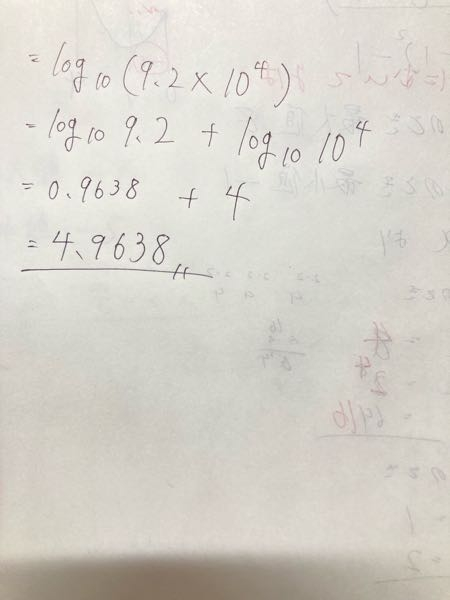 = log10 (9.2 × 10^4)
= log10 9.2 + log10 10^4
= 0.9638 + 4
= 4.9638